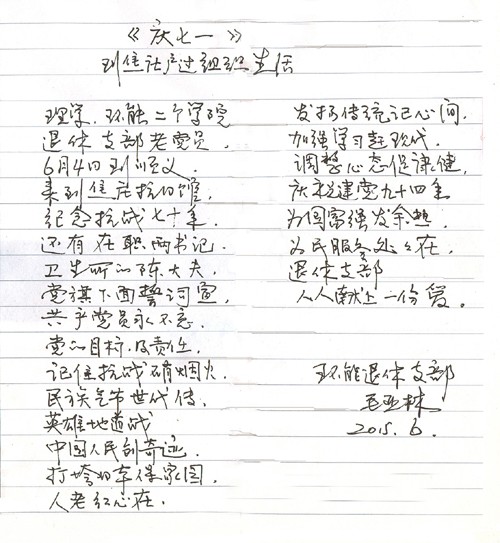 《庆七一》
到焦庄户过组织生活
理学.环能二个学院
退休支部老党员.
6月4日到顺义.
来到焦庄抗日馆,
纪念抗战七十年.
还有在职两书记.
卫生所的陈大夫.
党旗下面誓词宣,
共产党员永不忘.
党的目标.及责任.
记住抗战硝烟火.
民族气节世代传.
英雄地道战
中国人民创奇迹.
打垮日军保家园.
人老红心在.
发扬传统记心间.
加强学习赶现代.
调整心态促康健,
庆祝建党九十四年
为国富强发余热.
为民服务处々在.
退休支部
人人献上一份爱。
环能退休支部
毛亚林
2015.6.